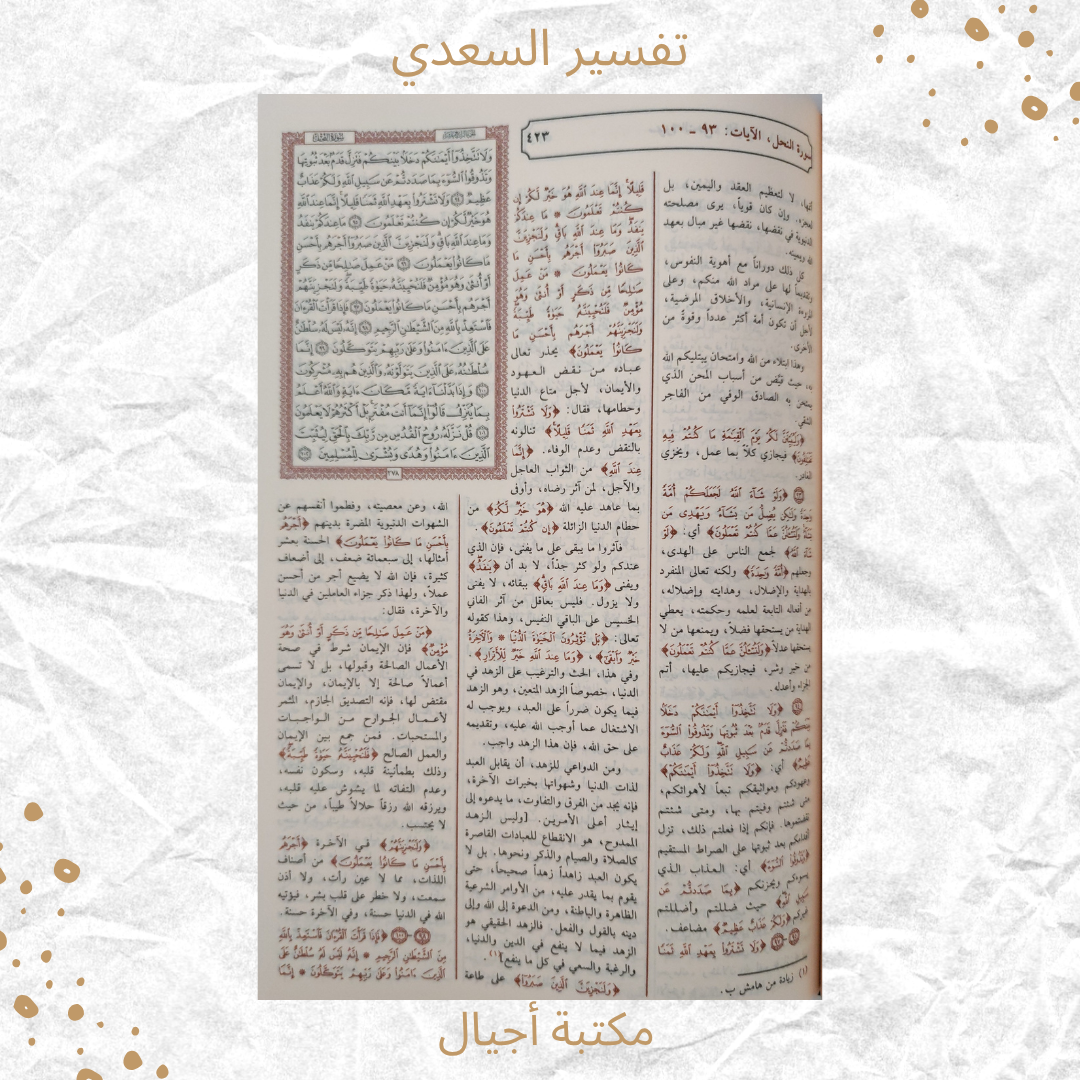 تفسير السعدي
سورة النحل، الآيات: ٩٣ - ١٠٠
٤٢٣
لا لتعظيم العقد واليمين، بل
وإن كان قوياً، يرى مصلحته
في نقضها، نقضها غير مبال بعهد
كل ذلك دوراناً مع أهوية النفوس،
لها على مراد الله منكم، وعلى
الإنسانية، والأخلاق المرضية،
أن تكون أمة أكثر عدداً وقوة من
الأخرى.
وهذا ابتلاء من الله وامتحان يبتليكم الله
حيث قيّض من أسباب المحن الذي
به الصادق الوفي من الفاجر
﴿وَلَيُبَيِّنَنَّ لَكُمْ يَوْمَ الْقِيَٰمَةِ مَا كُنتُمْ فِيهِ
فيجازي كلاً بما عمل، ويخزي
﴿وَلَوْ شَآءَ اللَّهُ لَجَعَلَكُمْ أُمَّةً
وَٰحِدَةً وَلَٰكِن يُضِلُّ مَن يَشَآءُ وَيَهْدِى مَن
يَشَآءُ وَلَتُسْـَٔلُنَّ عَمَّا كُنتُمْ تَعْمَلُونَ﴾ أي: ﴿لَوْ
شَآءَ اللَّهُ﴾ لجمع الناس على الهدى،
وجعلهم ﴿أُمَّةً وَٰحِدَةً﴾ ولكنه تعالى المنفرد
بالهداية والإضلال، وهدايته وإضلاله،
من أفعاله التابعة لعلمه وحكمته، يعطي
الهداية من يستحقها فضلاً، ويمنعها من لا
يستحقها عدلاً ﴿وَلَتُسْـَٔلُنَّ عَمَّا كُنتُمْ تَعْمَلُونَ﴾
من خير وشر، فيجازيكم عليها، أتم
الجزاء وأعدله.
﴿وَلَا تَتَّخِذُوٓا۟ أَيْمَٰنَكُمْ دَخَلًۢا
بَيْنَكُمْ فَتَزِلَّ قَدَمٌۢ بَعْدَ ثُبُوتِهَا وَتَذُوقُوا۟ السُّوٓءَ
بِمَا صَدَدتُّمْ عَن سَبِيلِ اللَّهِ وَلَكُمْ عَذَابٌ
عَظِيمٌ﴾ أي: ﴿وَلَا تَتَّخِذُوٓا۟ أَيْمَٰنَكُمْ﴾
وعهودكم ومواثيقكم تبعاً لأهوائكم،
متى شئتم وفيتم بها، ومتى شئتم
نقضتموها. فإنكم إذا فعلتم ذلك، تزل
أقدامكم بعد ثبوتها على الصراط المستقيم
﴿وَتَذُوقُوا۟ السُّوٓءَ﴾ أي: العذاب الذي
يسوءكم ويحزنكم ﴿بِمَا صَدَدتُّمْ عَن
سَبِيلِ اللَّهِ﴾ حيث ضللتم وأضللتم
غيركم ﴿وَلَكُمْ عَذَابٌ عَظِيمٌ﴾ مضاعف.
﴿وَلَا تَشْتَرُوا۟ بِعَهْدِ اللَّهِ ثَمَنًا
(١) زيادة من هامش ب.
قَلِيلًا إِنَّمَا عِندَ اللَّهِ هُوَ خَيْرٌ لَّكُمْ إِن
كُنتُمْ تَعْلَمُونَ * مَا عِندَكُمْ
يَنفَدُ وَمَا عِندَ اللَّهِ بَاقٍ وَلَنَجْزِيَنَّ
الَّذِينَ صَبَرُوٓا۟ أَجْرَهُم بِأَحْسَنِ مَا
كَانُوا۟ يَعْمَلُونَ * مَنْ عَمِلَ
صَٰلِحًا مِّن ذَكَرٍ أَوْ أُنثَىٰ وَهُوَ
مُؤْمِنٌ فَلَنُحْيِيَنَّهُۥ حَيَوٰةً طَيِّبَةً
وَلَنَجْزِيَنَّهُمْ أَجْرَهُم بِأَحْسَنِ مَا
كَانُوا۟ يَعْمَلُونَ﴾ يحذر تعالى
عباده من نقض العهود
والأيمان، لأجل متاع الدنيا
وحطامها، فقال: ﴿وَلَا تَشْتَرُوا۟
بِعَهْدِ اللَّهِ ثَمَنًا قَلِيلًا﴾ تنالونه
بالنقض وعدم الوفاء. ﴿إِنَّمَا
عِندَ اللَّهِ﴾ من الثواب العاجل
والآجل، لمن آثر رضاه، وأوفى
بما عاهد عليه الله ﴿هُوَ خَيْرٌ لَّكُمْ﴾ من
حطام الدنيا الزائلة ﴿إِن كُنتُمْ تَعْلَمُونَ﴾.
فآثروا ما يبقى على ما يفنى، فإن الذي
عندكم ولو كثر جداً، لا بد أن ﴿يَنفَدُ﴾
ويفنى ﴿وَمَا عِندَ اللَّهِ بَاقٍ﴾ ببقائه، لا يفنى
ولا يزول. فليس بعاقل من آثر الفاني
الخسيس على الباقي النفيس، وهذا كقوله
تعالى: ﴿بَلْ تُؤْثِرُونَ الْحَيَوٰةَ الدُّنْيَا * وَالْءَاخِرَةُ
خَيْرٌ وَأَبْقَىٰٓ﴾، ﴿وَمَا عِندَ اللَّهِ خَيْرٌ لِّلْأَبْرَارِ﴾.
وفي هذا، الحث والترغيب على الزهد في
الدنيا، خصوصاً الزهد المتعين، وهو الزهد
فيما يكون ضرراً على العبد، ويوجب له
الاشتغال عما أوجب الله عليه، وتقديمه
على حق الله، فإن هذا الزهد واجب.
ومن الدواعي للزهد، أن يقابل العبد
لذات الدنيا وشهواتها بخيرات الآخرة،
فإنه يجد من الفرق والتفاوت، ما يدعوه إلى
إيثار أعلى الأمرين. [وليس الزهد
الممدوح، هو الانقطاع للعبادات القاصرة
كالصلاة والصيام والذكر ونحوها. بل لا
يكون العبد زاهداً زهداً صحيحاً، حتى
يقوم بما يقدر عليه، من الأوامر الشرعية
الظاهرة والباطنة، ومن الدعوة إلى الله وإلى
دينه بالقول والفعل. فالزهد الحقيقي هو
الزهد فيما لا ينفع في الدين والدنيا،
والرغبة والسعي في كل ما ينفع](١).
﴿وَلَنَجْزِيَنَّ الَّذِينَ صَبَرُوٓا۟﴾ على طاعة
وَلَا تَتَّخِذُوٓا۟ أَيْمَٰنَكُمْ دَخَلًۢا بَيْنَكُمْ فَتَزِلَّ قَدَمٌۢ بَعْدَ ثُبُوتِهَا
وَتَذُوقُوا۟ السُّوٓءَ بِمَا صَدَدتُّمْ عَن سَبِيلِ اللَّهِ وَلَكُمْ عَذَابٌ
عَظِيمٌ ٩٤ وَلَا تَشْتَرُوا۟ بِعَهْدِ اللَّهِ ثَمَنًا قَلِيلًا إِنَّمَا عِندَ اللَّهِ
هُوَ خَيْرٌ لَّكُمْ إِن كُنتُمْ تَعْلَمُونَ ٩٥ مَا عِندَكُمْ يَنفَدُ
وَمَا عِندَ اللَّهِ بَاقٍ وَلَنَجْزِيَنَّ الَّذِينَ صَبَرُوٓا۟ أَجْرَهُم بِأَحْسَنِ
مَا كَانُوا۟ يَعْمَلُونَ ٩٦ مَنْ عَمِلَ صَٰلِحًا مِّن ذَكَرٍ
أَوْ أُنثَىٰ وَهُوَ مُؤْمِنٌ فَلَنُحْيِيَنَّهُۥ حَيَوٰةً طَيِّبَةً وَلَنَجْزِيَنَّهُمْ
أَجْرَهُم بِأَحْسَنِ مَا كَانُوا۟ يَعْمَلُونَ ٩٧ فَإِذَا قَرَأْتَ الْقُرْءَانَ
فَاسْتَعِذْ بِاللَّهِ مِنَ الشَّيْطَٰنِ الرَّجِيمِ ٩٨ إِنَّهُۥ لَيْسَ لَهُۥ سُلْطَٰنٌ
عَلَى الَّذِينَ ءَامَنُوا۟ وَعَلَىٰ رَبِّهِمْ يَتَوَكَّلُونَ ٩٩ إِنَّمَا
سُلْطَٰنُهُۥ عَلَى الَّذِينَ يَتَوَلَّوْنَهُۥ وَالَّذِينَ هُم بِهِۦ مُشْرِكُونَ
١٠٠ وَإِذَا بَدَّلْنَآ ءَايَةً مَّكَانَ ءَايَةٍ وَاللَّهُ أَعْلَمُ
بِمَا يُنَزِّلُ قَالُوٓا۟ إِنَّمَآ أَنتَ مُفْتَرٍۭ بَلْ أَكْثَرُهُمْ لَا يَعْلَمُونَ
١٠١ قُلْ نَزَّلَهُۥ رُوحُ الْقُدُسِ مِن رَّبِّكَ بِالْحَقِّ لِيُثَبِّتَ
الَّذِينَ ءَامَنُوا۟ وَهُدًى وَبُشْرَىٰ لِلْمُسْلِمِينَ ١٠٢
٢٧٨
الله، وعن معصيته، وفطموا أنفسهم عن
الشهوات الدنيوية المضرة بدينهم ﴿أَجْرَهُم
بِأَحْسَنِ مَا كَانُوا۟ يَعْمَلُونَ﴾ الحسنة بعشر
أمثالها، إلى سبعمائة ضعف، إلى أضعاف
كثيرة، فإن الله لا يضيع أجر من أحسن
عملاً، ولهذا ذكر جزاء العاملين في الدنيا
والآخرة، فقال:
﴿مَنْ عَمِلَ صَٰلِحًا مِّن ذَكَرٍ أَوْ أُنثَىٰ وَهُوَ
مُؤْمِنٌ﴾ فإن الإيمان شرط في صحة
الأعمال الصالحة وقبولها، بل لا تسمى
أعمالاً صالحة إلا بالإيمان، والإيمان
مقتض لها، فإنه التصديق الجازم، المثمر
لأعمال الجوارح من الواجبات
والمستحبات. فمن جمع بين الإيمان
والعمل الصالح ﴿فَلَنُحْيِيَنَّهُۥ حَيَوٰةً طَيِّبَةً﴾
وذلك بطمأنينة قلبه، وسكون نفسه،
وعدم التفاته لما يشوش عليه قلبه،
ويرزقه الله رزقاً حلالاً طيباً، من حيث
لا يحتسب.
﴿وَلَنَجْزِيَنَّهُمْ﴾ في الآخرة ﴿أَجْرَهُم
بِأَحْسَنِ مَا كَانُوا۟ يَعْمَلُونَ﴾ من أصناف
اللذات، مما لا عين رأت، ولا أذن
سمعت، ولا خطر على قلب بشر. فيؤتيه
الله في الدنيا حسنة، وفي الآخرة حسنة.
﴿فَإِذَا قَرَأْتَ الْقُرْءَانَ فَاسْتَعِذْ بِاللَّهِ
مِنَ الشَّيْطَٰنِ الرَّجِيمِ * إِنَّهُۥ لَيْسَ لَهُۥ سُلْطَٰنٌ عَلَى
الَّذِينَ ءَامَنُوا۟ وَعَلَىٰ رَبِّهِمْ يَتَوَكَّلُونَ * إِنَّمَا
مكتبة أجيال